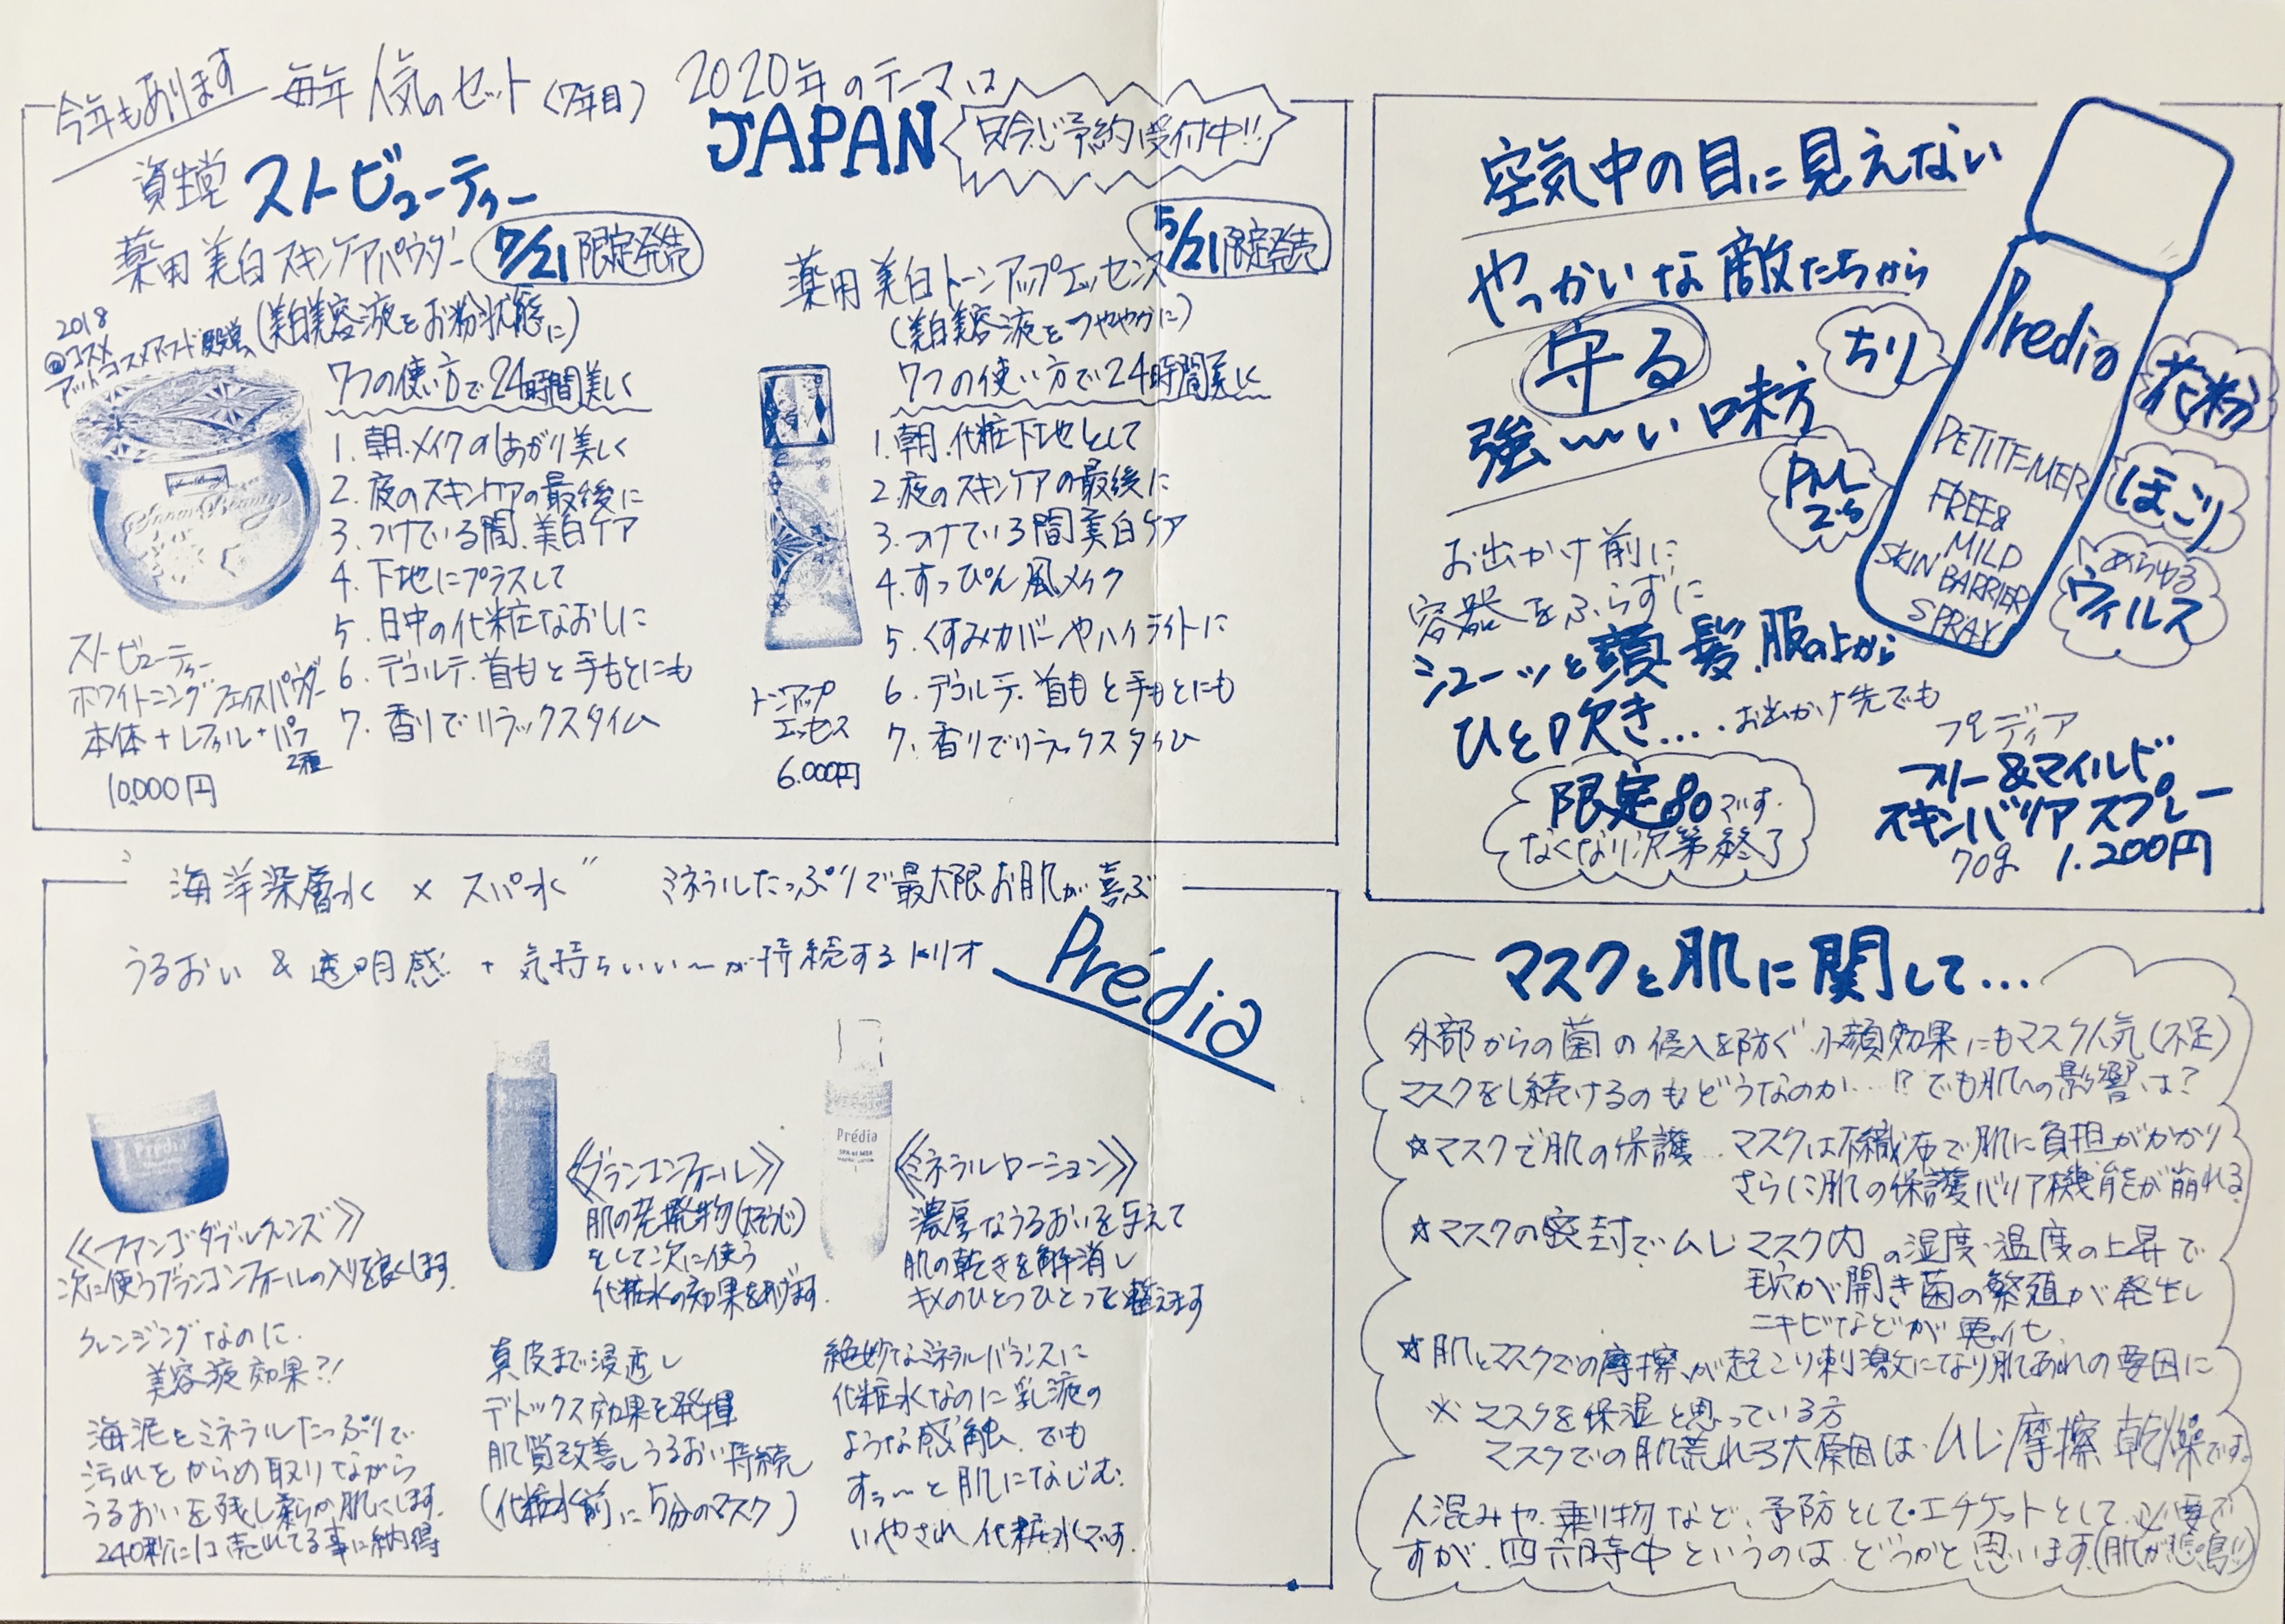 今年もあります
毎年人気のセット〈7年目〉
2020年のテーマは
JAPAN
只今ご予約受付中!!
資生堂
ストビューティー
薬用美白スキンケアパウダー
7/21限定発売
(美白美容液をお粉状態に)
2018
@コスメ
アットコスメアワード殿堂
Snow Beauty
7つの使い方で24時間美しく
1. 朝.メイクのしあがり美しく
2. 夜のスキンケアの最後に
3. つけている間.美白ケア
4. 下地にプラスして
5. 日中の化粧なおしに
6. デコルテ.首もと手もとにも
7. 香りでリラックスタイム
ストビューティー
ホワイトニングフェイスパウダー
本体+レフィル+パフ
2種
10,000円
5/21限定発売
薬用美白トーンアップエッセンス
(美白美容液をつややかに)
7つの使い方で24時間美しく
1. 朝.化粧下地として
2. 夜のスキンケアの最後に
3. つけている間美白ケア
4. すっぴん風メイク
5. くすみカバーやハイライトに
6. デコルテ.首もと手もとにも
7. 香りでリラックスタイム
トーンアップ
エッセンス
6.000円
空気中の目に見えない
やっかいな敵たちから
守る
強〜〜い味方
ちり
花粉
PM
2.5
ほこり
あらゆる
ウイルス
Predia
PETITE-MER
FREE&
MILD
SKIN BARRIER
SPRAY
お出かけ前に
容器をふらずに
シューッと頭髪.服の上から
ひと吹き....お出かけ先でも
限定80です.
なくなり次第終了
プレディア
フリー&マイルド
スキンバリアスプレー
70g 1.200円
"海洋深層水 × スパ水" ミネラルたっぷりで最大限お肌が喜ぶ
うるおい & 透明感 + 気持ちいい〜が持続するトリオ
Prédia
Prédia
《ファンゴダブルクレンズ》
次に使うブランコンフォールの入りを良くします.
クレンジングなのに.
美容液効果?!
海泥とミネラルたっぷりで
汚れをからめ取りながら
うるおいを残し柔らか肌にします.
240秒に1コ売れてる事に納得
《ブランコンフォール》
肌の老廃物(大そうじ)
をして次に使う
化粧水の効果をあげます.
真皮まで浸透し
デトックス効果を発揮
肌質改善しうるおい持続
(化粧水前に5分のマスク)
Prédia
SPA et MER
《ミネラルローション》
濃厚なうるおいを与えて
肌の乾きを解消し
キメのひとつひとつを整えます
絶妙なミネラルバランスに
化粧水なのに乳液の
ような感触.でも
すぅ〜と肌になじむ.
いやされ化粧水です.
マスクと肌に関して...
外部からの菌の侵入を防ぐ.小顔効果にもマスク人気(不足)
マスクをし続けるのもどうなのか....!?でも肌への影響は?
☆マスクで肌の保護...マスクは不織布で肌に負担がかかり
さらに肌の保護バリア機能が崩れる.
☆マスクの密封で.ムレ マスク内の湿度.温度の上昇で
毛穴が開き菌の繁殖が発生し
ニキビなどが悪化.
☆肌とマスクでの摩擦が起こり刺激になり肌あれの要因に
※マスクを保湿と思っている方
マスクでの肌荒れる大原因は.ムレ.摩擦.乾燥です.
人混みや.乗り物など.予防として・エチケットとして.必要で
すが.四六時中というのは.どうかと思います.(肌が悲鳴!!)